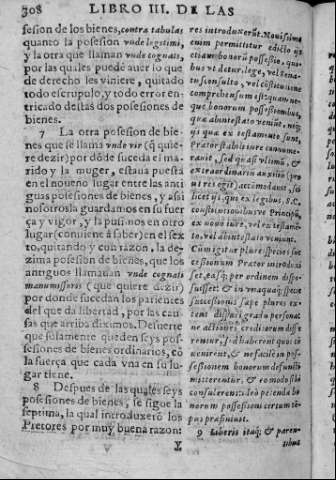 308 LIBRO III. DE LAS
sesion de los bienes, contra tabulas
quanto la posesion vnde legitimi,
y la otra que llaman vnde cognati,
por las quales puede auer lo que
de derecho les viniere, quitado
todo escrupulo, y todo error en-
tricado destas dos posesiones de
bienes.
7 La otra posesion de bie-
nes que se llama vnde vir (q̃ quie-
re dezir) por dõde suceda el ma-
rido y la muger, estaua puesta
en el noueno lugar entre las anti
guas posesiones de bienes, y assi
nosotros la guardamos en su fuer
ça y vigor, y la pusimos en otro
lugar (conuiene à saber) en el sex
to, quitando y con razon, la de-
zima posesion de bienes, que los
antiguos llamauan vnde cognati
manumissoris (que quiere dezir)
por donde sucedan los parientes
del que da libertad, por las cau-
sas que arriba diximos. De suerte
que solamente queden seys pos-
sesiones de bienes ordinarios, cõ
la fuerça que cada vna en su lu-
gar tiene.
8 Despues de las quales seys
posesiones de bienes, se sigue la
septima, la qual introduxerõ los
Pretores por muy buena razon:
res introduxerũt. Nouissime
enim permittitur edicto
etiam bonorũ possessio, qui-
bus vt detur, lege, vel sena-
tusconsulto, vel constitutione
comprehensum est: quam ne-
que bonorum possessionibus,
quæ ab intestato veniũt, neq;
ijs quæ ex testamento sunt,
prætor stabili iure connume-
rauit, sed quasi vltimũ, &
extraordinariũ auxiliũ (pro
ut res exigit) accõmodauit, sci
licet ijs, qui ex legibus, S.C.
constitutionibusve Principũ,
ex nouo iure, vel ex testamẽ-
to, vel ab intestato veniunt.
Cùm igitur plures species suc
cessionum Prætor introduxis
set, easq; per ordinem dispo-
suisset: & in vnaquaq; specie
successionis sæpe plures ex-
tent dispari gradu personæ:
ne actiones creditorum diffe
rentur, sed haberent quos cõ
uenirent, & ne facilè in pos-
sessionem bonorum defuncti
mitterentur, & eo modo sibi
consulerent: ideo petendæ bo-
norum possessioni certum tẽ-
pus præfiniuit.
9 Liberis itaq; & paren-
X tibus